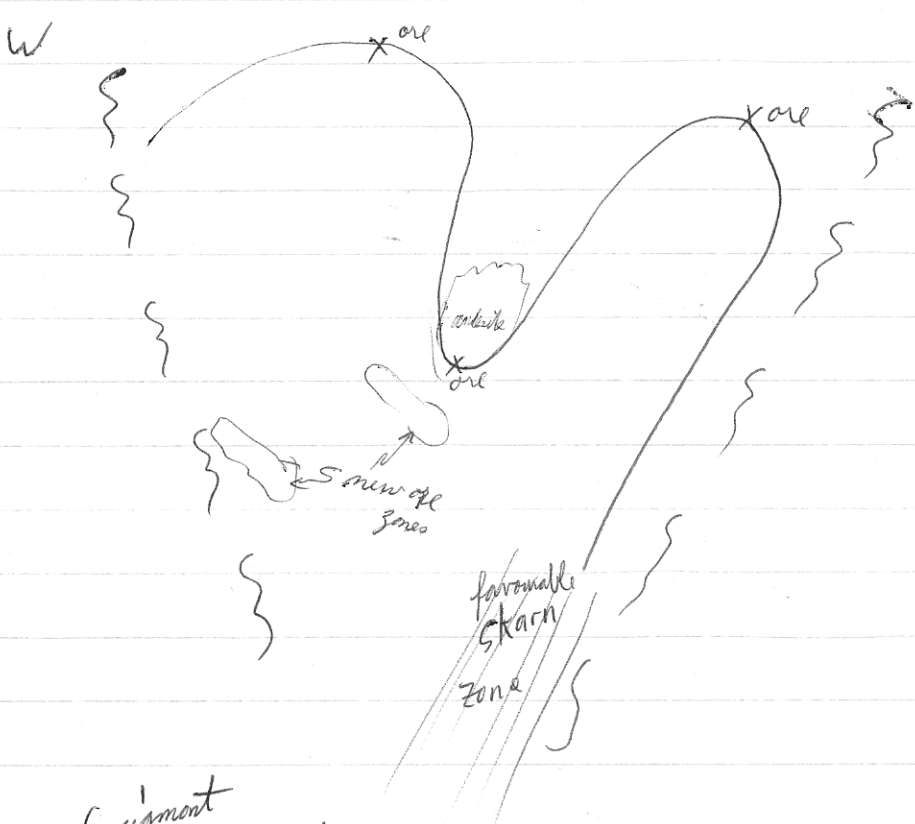 W
ore
ore
andesite
ore
5 new ore
zones
favourable
skarn
zone